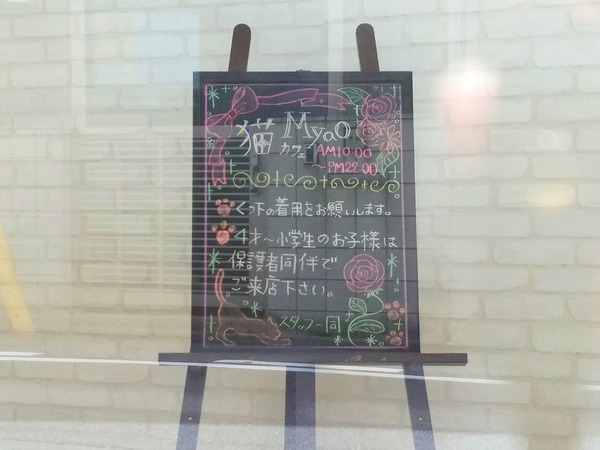 猫カフェ MyaO
AM10:00
～PM22:00
くつ下の着用をお願いします。
4才～小学生のお子様は
保護者同伴で
ご来店下さい。
スタッフ一同